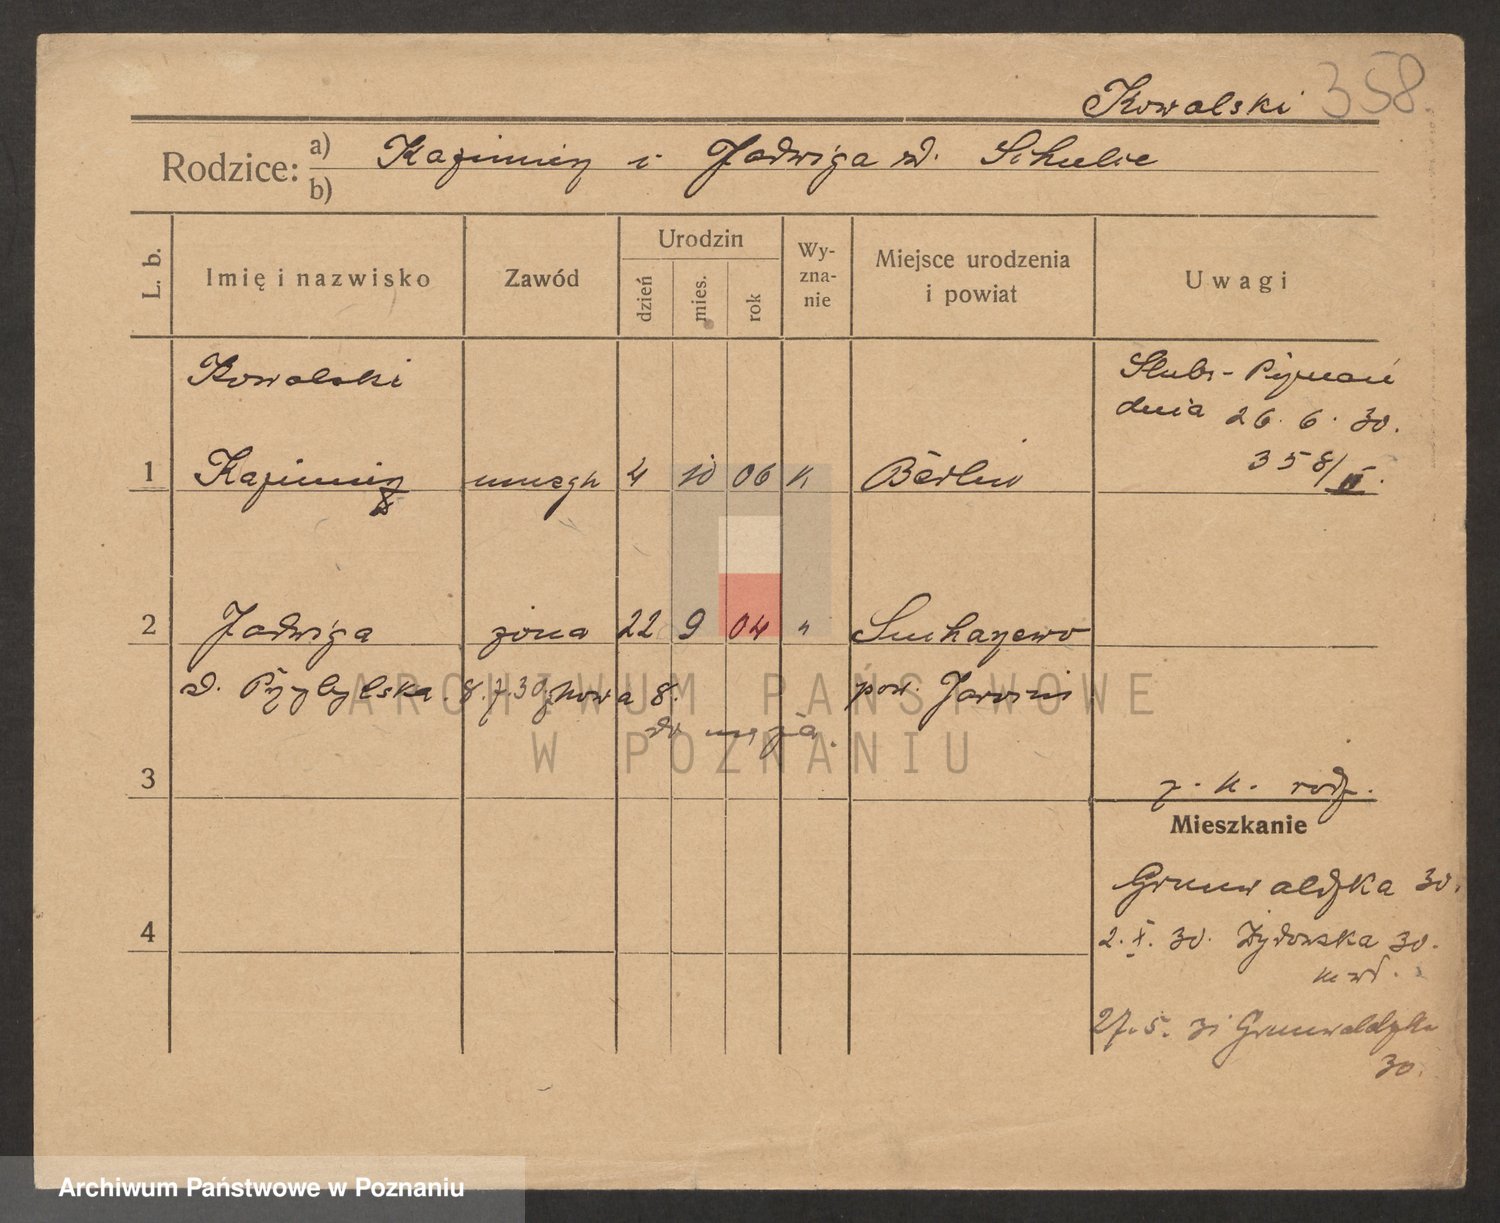 Kowalski 358.
Rodzice: a) b) Kazimierz i Jadwiga zd. Schulze
L. b. Imię i nazwisko Zawód Urodzin dzień mies. rok Wyznanie Miejsce urodzenia i powiat Uwagi
Kowalski Ślub - Poznań
dnia 26. 6. 30.
358/II.
1 Kazimierz 4 10 06 k Berlin
2 Jadwiga żona 22 9 04 " Suchorzewo
d. Przybylska 8. 7. 30 8. pow. Jarocin
do męża.
ARCHIWUM PAŃSTWOWE
W POZNANIU
3 z. k. rodz.
Mieszkanie
Grunwaldzka 30.
4 2. X. 30. Żydowska 30.
27. 5. 31 Grunwaldzka
30.
Archiwum Państwowe w Poznaniu